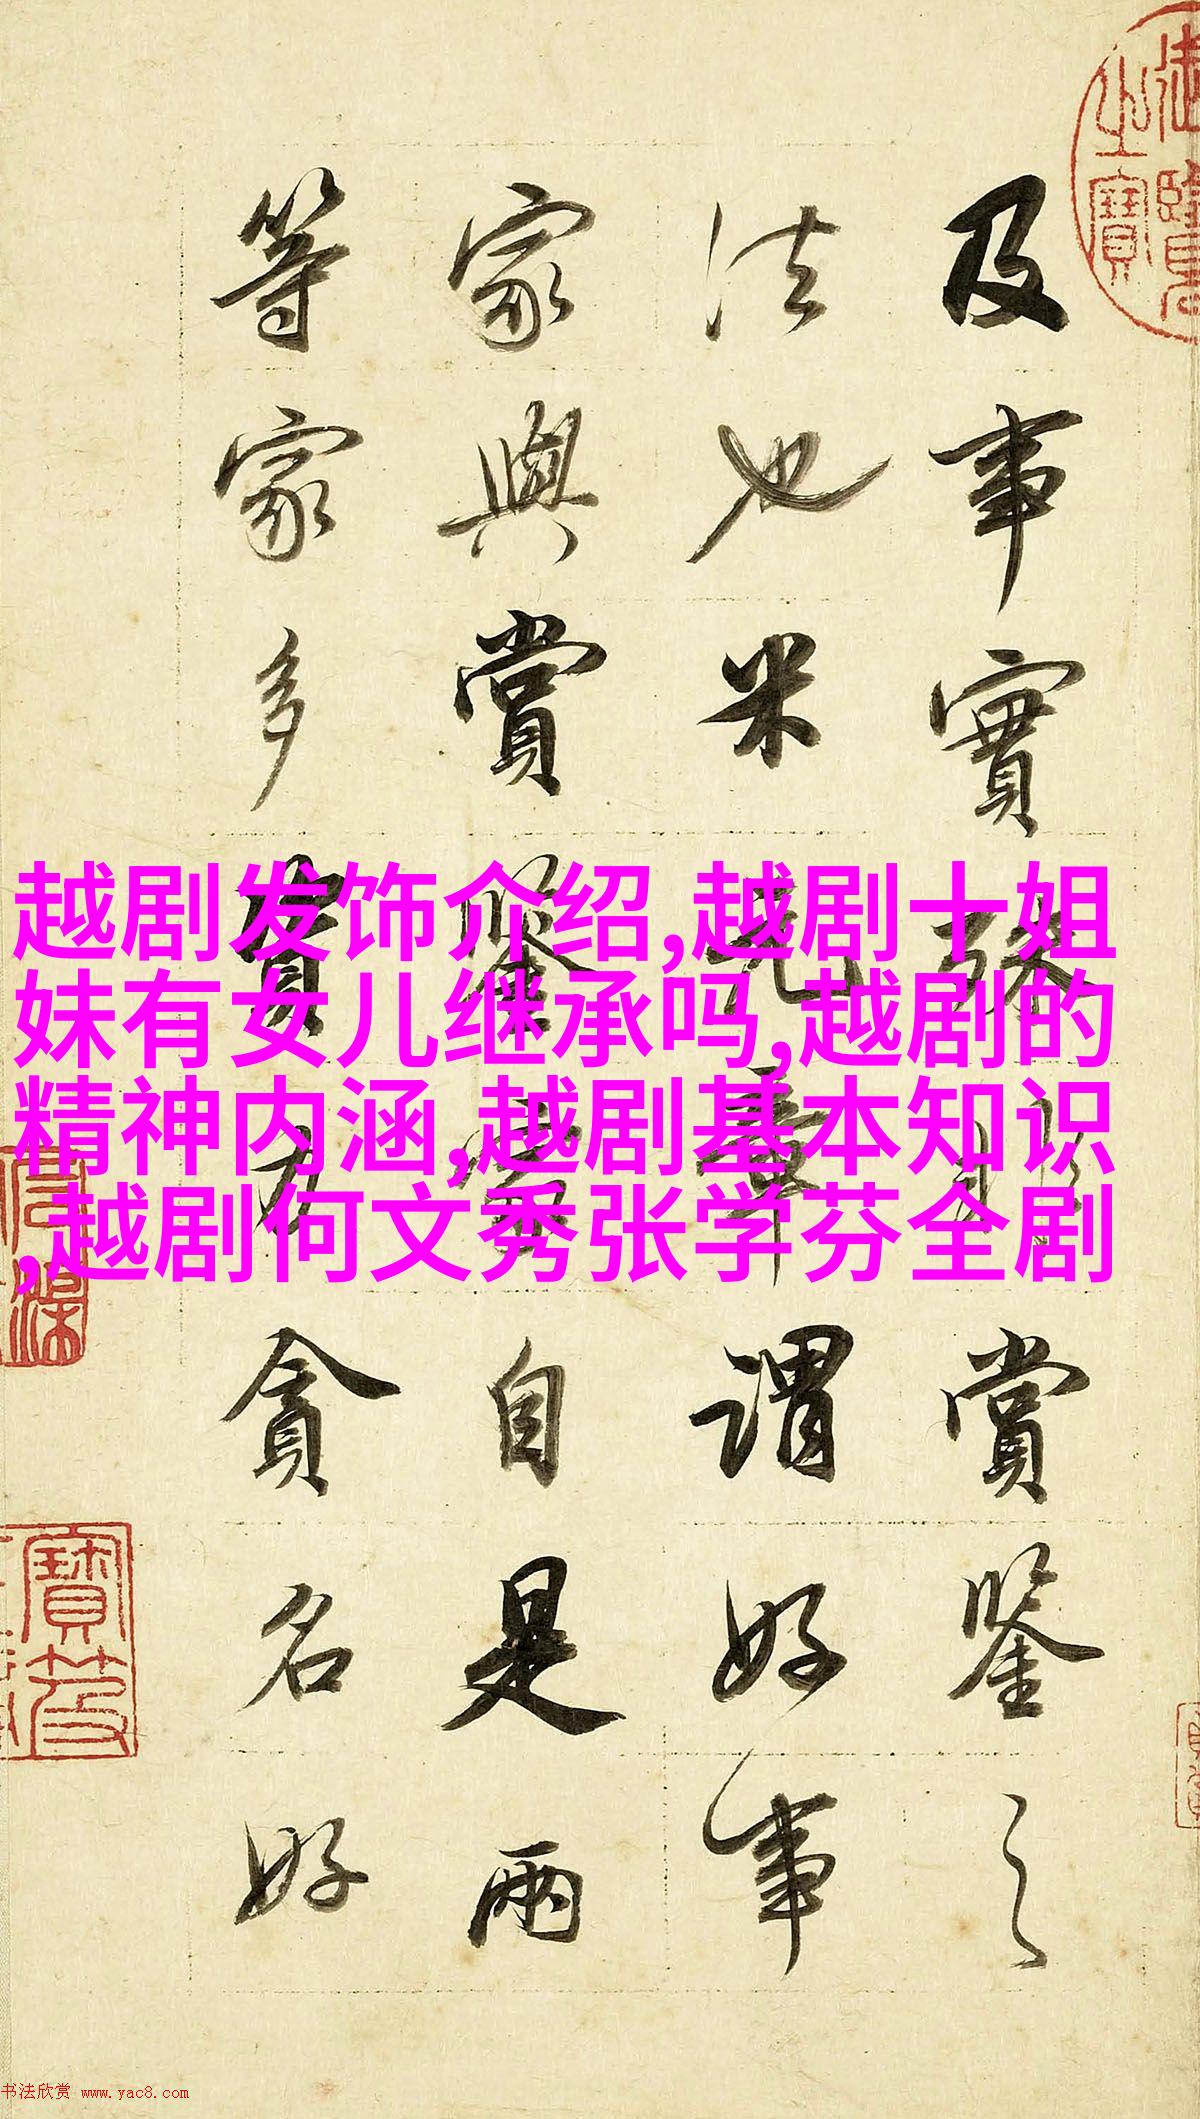 御覽之寶
及事實殊非賞鑒之
法也米元章謂好事
家與賞鑒家自是兩
等家多資力貪名好
越剧发饰介绍,越剧十姐
妹有女儿继承吗,越剧的
精神内涵,越剧基本知识
,越剧何文秀张学芬全剧
书法欣赏 www.yac8.com